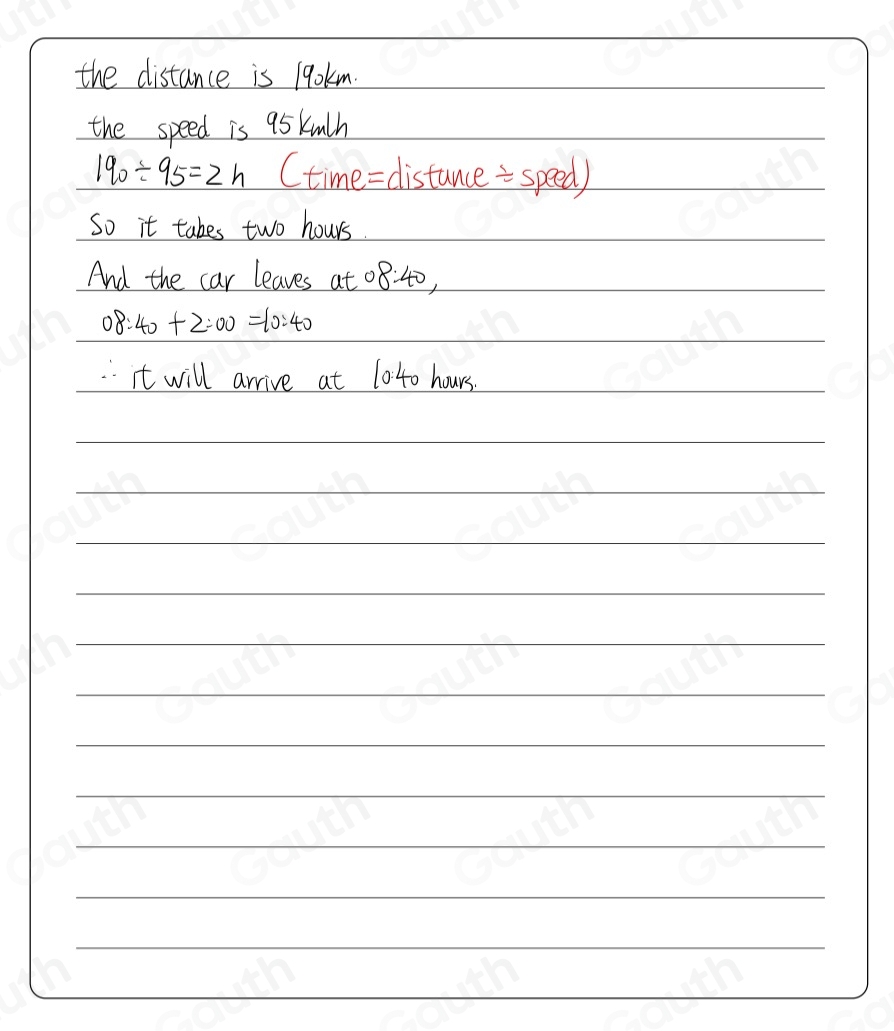 the distance is 190km.
the speed is 95 km/h
190÷95=2h (time=distance÷speed)
So it takes two hours.
And the car leaves at 08:40,
08:40+2:00=10:40
∴ it will arrive at 10:40 hours.